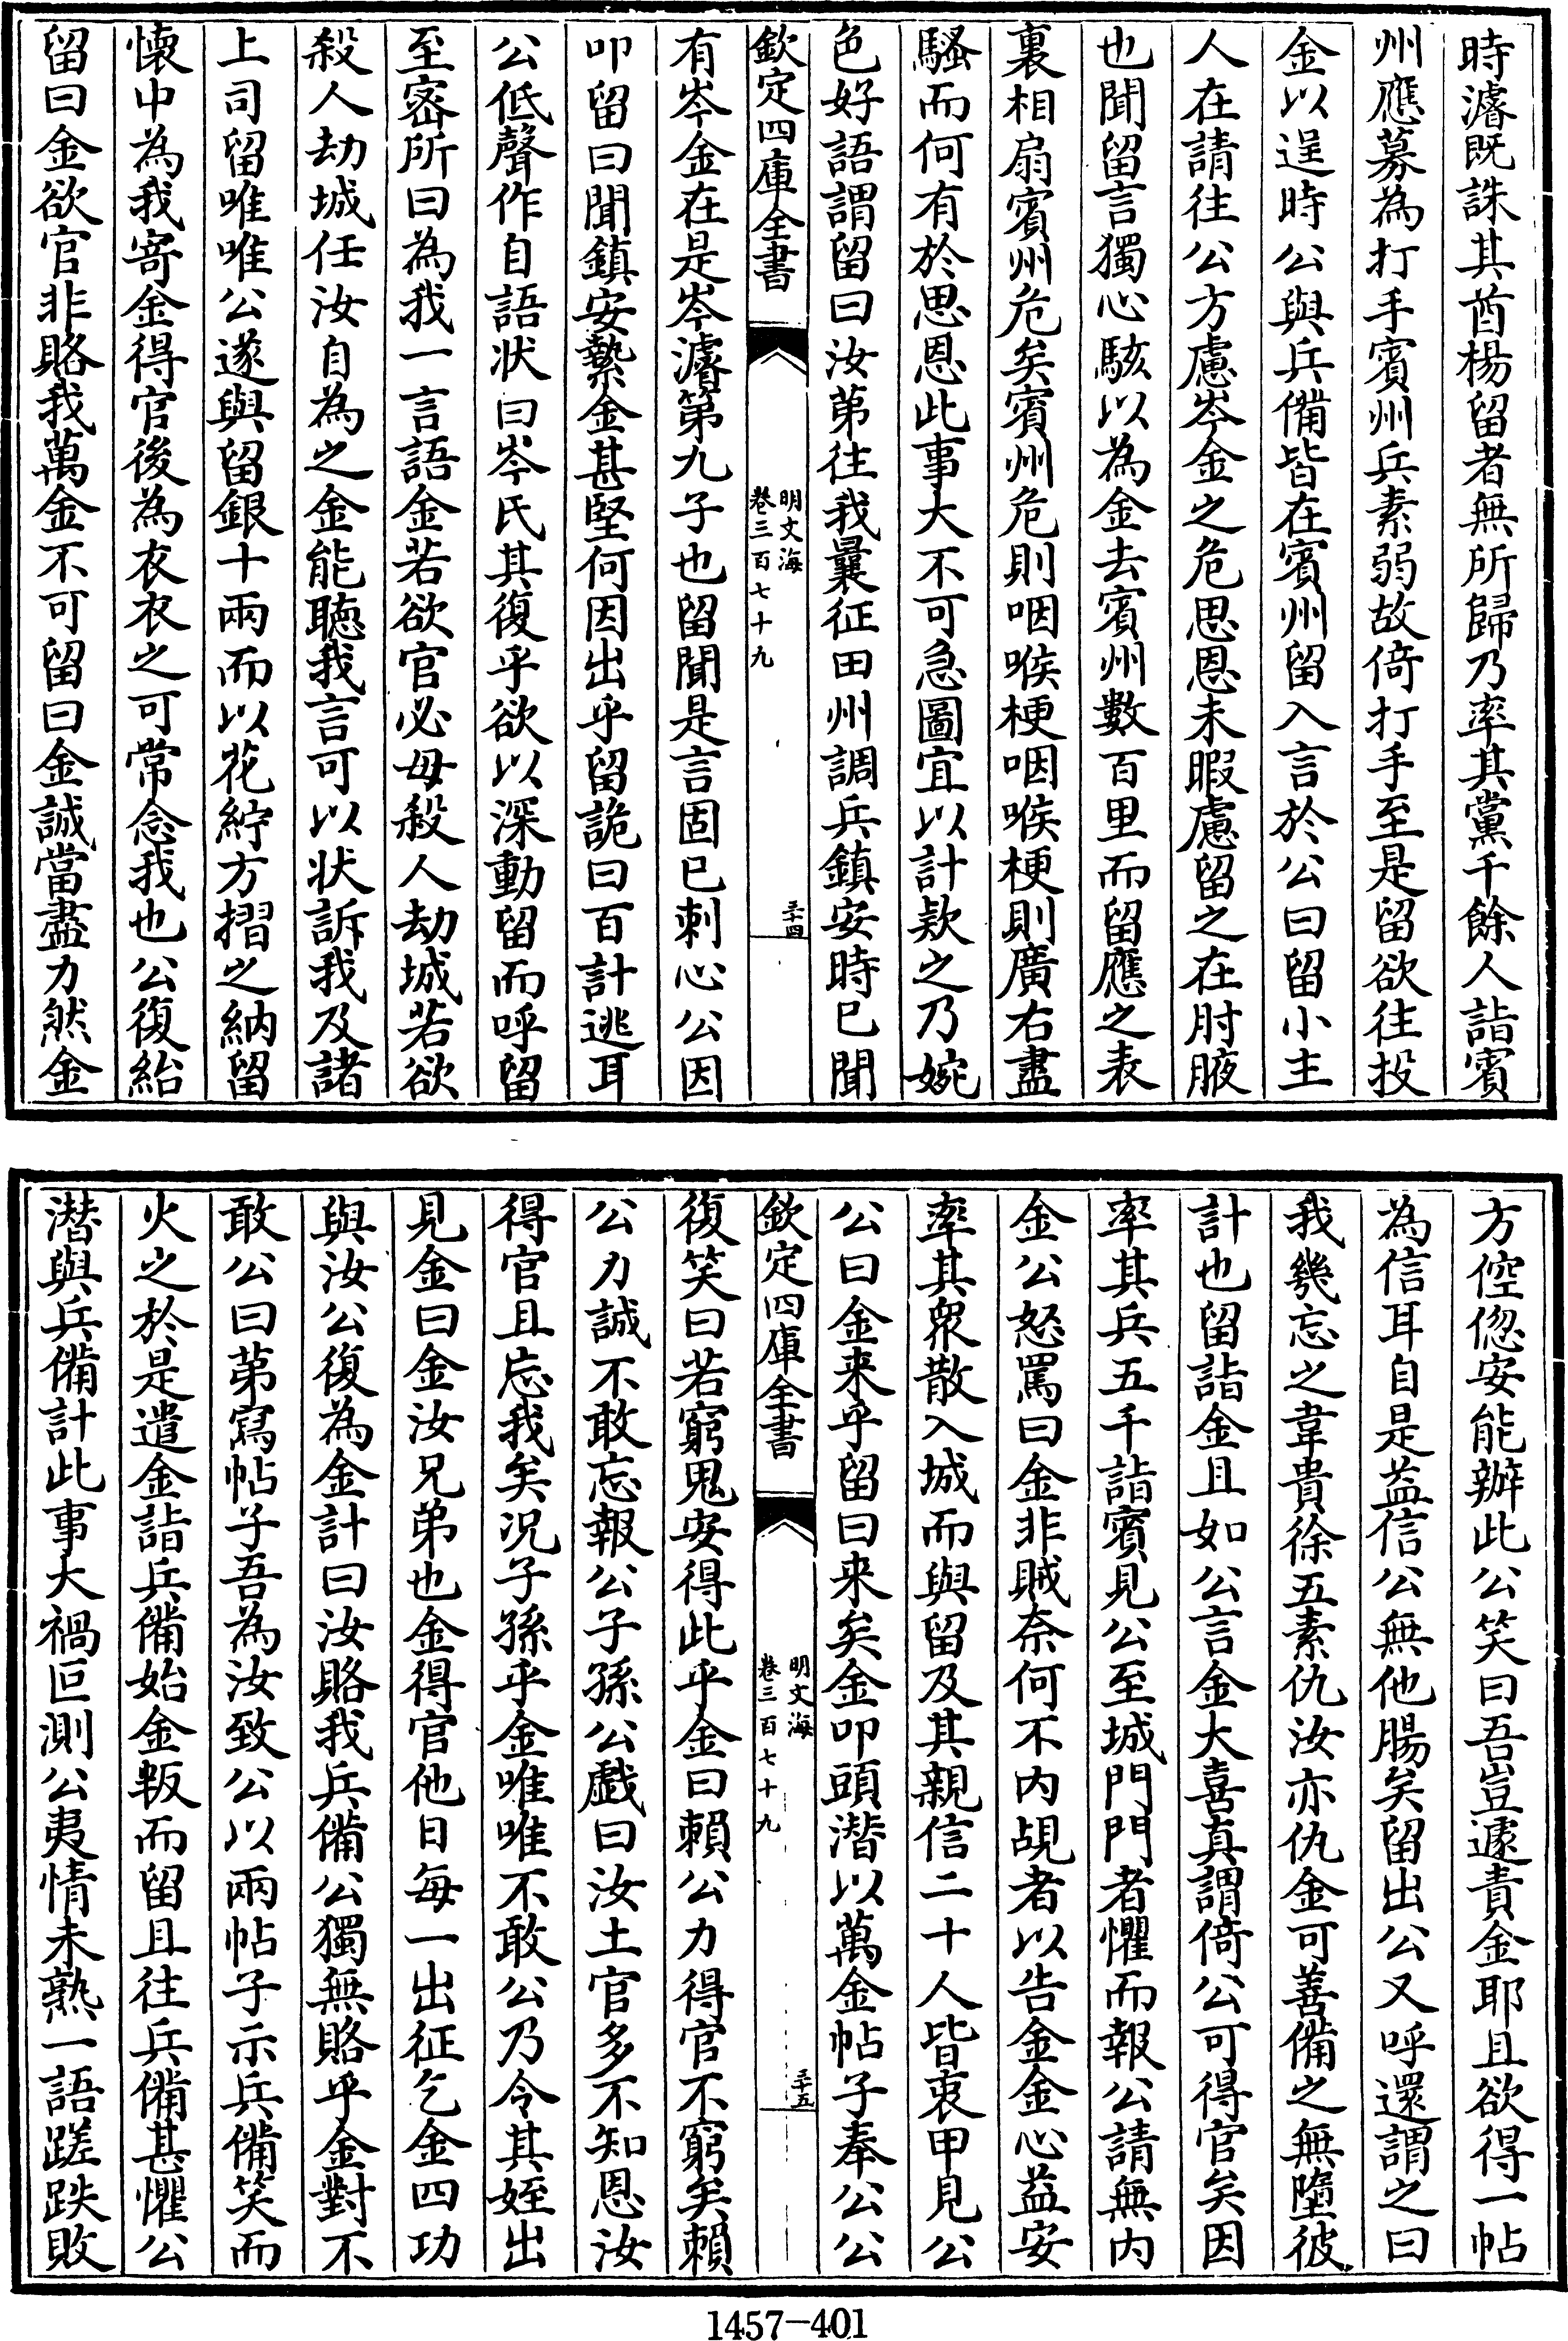 時濬既誅其酋楊留者無所歸乃率其黨千餘人詣賓
州應募為打手賓州兵素弱故倚打手至是留欲往投
金以逞時公與兵備皆在賓州留入言於公曰留小主
人在請往公方慮岑金之危思恩未暇慮留之在肘腋
也聞留言獨心駭以為金去賓州數百里而留應之表
裏相扇賓州危矣賓州危則咽喉梗咽喉梗則廣右盡
騷而何有於思恩此事大不可急圖宜以計欵之乃婉
色好語謂留曰汝苐往我曩征田州調兵鎮安時已聞
欽定四庫全書
明文海
卷三百七十九
三十四
有岑金在是岑濬第九子也留聞是言固已刺心公因
叩留曰聞鎮安縶金甚堅何因出乎留詭曰百計逃耳
公低聲作自語状曰岑氏其復乎欲以深動留而呼留
至宻所曰為我一言語金若欲官必毋殺人劫城若欲
殺人劫城任汝自為之金能聴我言可以状訴我及諸
上司留唯唯公遂與留銀十兩而以花紵方摺之納留
懐中為我寄金得官後為衣衣之可常念我也公復紿
留曰金欲官非賂我萬金不可留曰金誠當盡力然金
方倥偬安能辦此公笑曰吾豈遽責金耶且欲得一帖
為信耳自是益信公無他腸矣留出公又呼還謂之曰
我幾忘之韋貴徐五素仇汝亦仇金可善備之無墮彼
計也留詣金且如公言金大喜真謂倚公可得官矣因
率其兵五千詣賓見公至城門門者懼而報公請無内
金公怒罵曰金非賊奈何不内覘者以告金金心益安
率其衆散入城而與留及其親信二十人皆衷甲見公
公曰金来乎留曰来矣金叩頭潜以萬金帖子奉公公
欽定四庫全書
明文海
卷三百七十九
三十五
復笑曰若窮鬼安得此乎金曰賴公力得官不窮矣賴
公力誠不敢忘報公子孫公戯曰汝土官多不知恩汝
得官且忘我矣况子孫乎金唯唯不敢公乃令其姪出
見金曰金汝兄弟也金得官他日每一出征乞金四功
與汝公復為金計曰汝賂我兵備公獨無賂乎金對不
敢公曰苐寫帖子吾為汝致公以兩帖子示兵備笑而
火之於是遣金詣兵備始金叛而留且往兵備甚懼公
潜與兵備計此事大禍叵測公夷情未熟一語蹉跌敗
1457-401